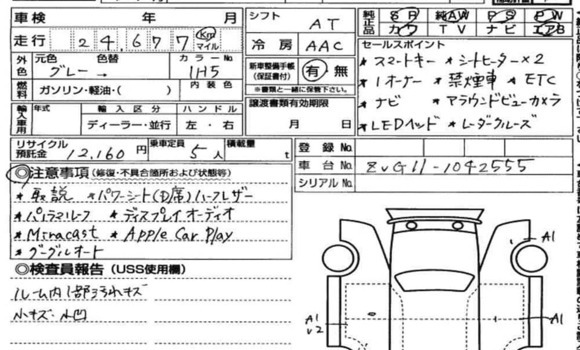 車検 年 月
シフト AT
純正品 SR 純AW PS PW
カワ TV ナビ エアB
走行 24,677 Km マイル
冷房 AAC
セールスポイント
外色 元色 色替 カラーNo
グレー → 1H5
新車整備手帳(保証書付) 有・無
※書類と一緒に保管下さい。
*スマートキー *シートヒーター×2
*1オーナー *禁煙車 *ETC
*ナビ *アラウンドビューカメラ
*LEDヘッド *レーダクルーズ
燃料 ガソリン・軽油・( ) 内装色
輸入車用 年式 輸入区分 ハンドル
ディーラー・並行 左・右
譲渡書類有効期限
月 日
リサイクル預託金 12,160円 乗車定員 5人 積載量 t
登録No
車台No ZVG11-1042555
シリアルNo
◎注意事項(修復・不具合箇所および状態等)
*取説 *パワーシート(D席)ハーフレザー
*パノラマルーフ *ディスプレイオーディオ
*Miracast *Apple Car Play
*グーグルオート
◎検査員報告(USS使用欄)
ルーム内1部汚れキズ
小キズ・小凹
A1
A1
A1
v2